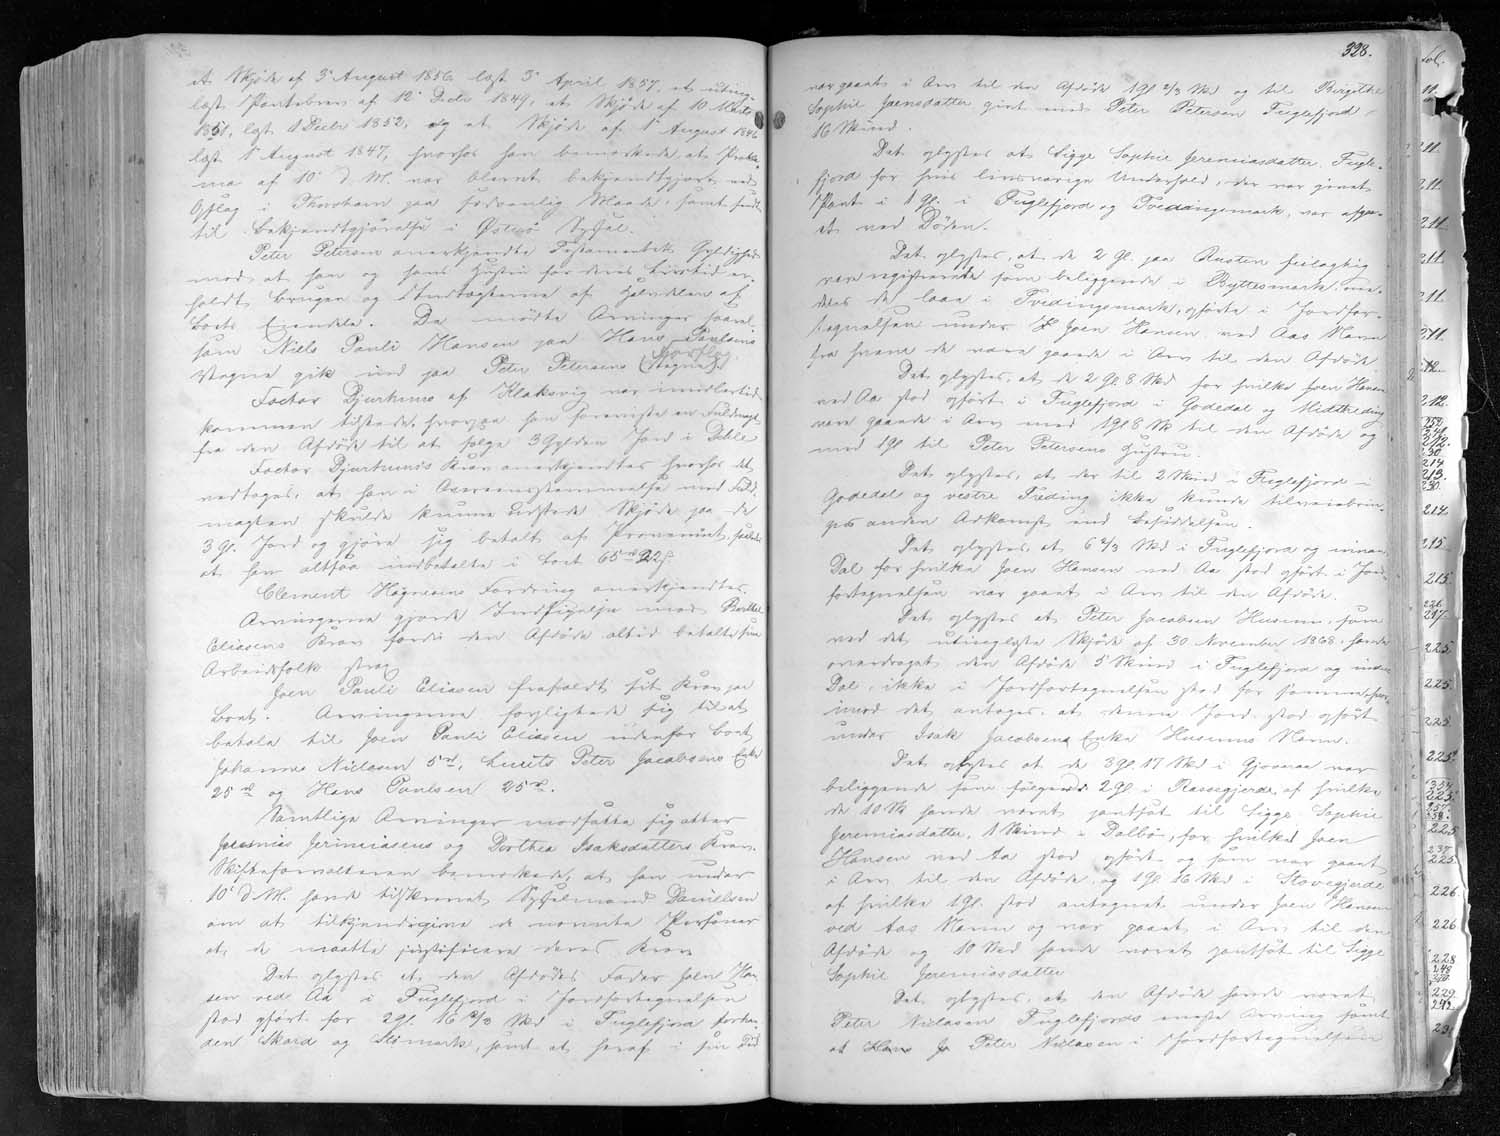 et Skjøde af 3' August 1856 læst 3' April 1857, et uting-
læst Pantebrev af 12' Decbr 1849, et Skjøde af 10 Marts
1851, læst 1 Decbr 1852, og et Skjøde af 1' August 1846
læst 1' August 1847, hvorhos han bemærkede, at Prokla-
ma af 10' d. M. var blevet bekjendtgjort ved
Opslag i Thorshavn paa sædvanlig Maade, samt sendt
til Bekjendtgjørelse i Østerø Syssel.
Peter Petersen anerkjendte Testamentets Gyldighed
mod at han og hans Hustru for deres Livstid er-
holdt Brugen og Indtægterne af Halvdelen af
Boets Eiendele. De mødte Arvinger saavel
som Niels Pauli Hansen paa Hans Paulsens
Vegne gik ind paa Peter Petersens Forslag.
Factor Djurhuus af Klaksvig var imidlertid
kommen tilstede, hvorpaa han foreviste en Fuldmagt
fra den Afdøde til at sælge 3 Gylden Jord i Deble
Factor Djurhuus's Krav anerkjendtes hvorhos det
vedtoges, at han i Overeensstemmelse med Fuld-
magten skulde kunne udstede Skjøde paa de
3 Gl. Jord og gjøre sig betalt af Provenuet,
at han altsaa indbetalte i Boet 65 rd 22 s.
Clement Høgnesens Fordring anerkjendtes.
Arvingerne gjorde Indsigelse mod
Eliasens Krav fordi den Afdøde altid betalte sine
Arbeidsfolk strax
Joen Pauli Eliasen frafaldt sit Krav paa
Boet. Arvingerne forpligtede sig til at
betale til Joen Pauli Eliasen udenfor Boet
Johannes Niclasen 5 rd, Lurits Peter Jacobsens Enke
25 rd og Hans Paulsen 25 rd.
Samtlige Arvinger modsatte sig atter
Jeremias Jerimiasens og Dorthea Isaksdatters Krav.
Skifteforvalteren bemærkede, at han under
10' d. M. havde tilskrevet Sysselmand Danielsen
om at tilkjendegive de nævnte Personer
at de maatte justificere deres Krav
Det oplystes at den Afdødes Fader Joen Han-
sen ved Aa i Fuglefjord i Jordfortegnelsen
stod opført for 2 Gl. 16 2/3 Skd i Fuglefjord
den Skard og Stømark, samt at heraf i sin Tid
328.
var gaaet i Arv til den Afdøde 1 Gl 2/3 Skd og til Birgithe
Sophie Joensdatter givt med Peter Petersen Fuglefjord
16 Skind.
Det oplystes at Sigge Sophie Jeremiasdatter Fugle-
fjord for hvis livsvarige Underhold, der var givet
Pant i 1 Gl. i Fuglefjord og Tredingemark, var afgaa-
et ved Døden.
Det oplystes, at de 2 Gl. paa Rusten feilagtig
vare registrerede som beliggende i Byttesmark, me-
dens de laae i Tredingsmark, opførte i Jordfor-
tegnelsen under Joen Hansen ved Aas Navn
fra hvem de vare gaaede i Arv til den Afdøde
Det oplystes, at de 2 Gl 8 Skd for hvilke Joen Hansen
ved Aa stod opført i Fuglefjord i Godedal og Midttreding
vare gaaede i Arv med 1 Gl 8 Sk til den Afdøde og
med 1 Gl til Peter Petersens Hustru.
Det oplystes, at der til 2 Skind i Fuglefjord i
Godedal og vestre Treding ikke kunde tilveiebrin-
ges anden Adkomst end Besiddelsen.
Det oplystes, at 6 2/3 Skd i Fuglefjord og innan
Dal for hvilke Joen Hansen ved Aa stod opført i Jord-
fortegnelsen var gaaet i Arv til den Afdøde.
Det oplystes at Peter Jacobsen Husum, som
ved det utinglæste Skjøde af 30 November 1868, havde
overdraget den Afdøde 5 Skind i Fuglefjord og innan
Dal, ikke i Jordfortegnelsen stod for samme, hvor-
imod det antoges, at denne Jord stod opført
under Isak Jacobsens Enke Husums Navn.
Det oplystes at de 3 Gl. 17 Skd i Gjoveraa var
beliggende som følgende 2 Gl. i Rassegjerde, af hvilke
de 10 Sk havde været pantsat til Sigge Sophie
Jeremiasdatter, 1 Skind i Dalbø, for hvilket Joen
Hansen ved Aa stod opført og som var gaaet
i Arv til den Afdøde, og 1 Gl 16 Skd i Stovegjerde
af hvilke 1 Gl. stod antegnet under Joen Hansen
ved Aas Navn og var gaaet i Arv til den
Afdøde og 10 Skd havde været pantsat til Sigge
Sophie Jeremiasdatter
Det oplystes, at den Afdøde havde været
Peter Niclasen Fuglefjords eneste Arving samt
at Peter Niclasen i Jordfortegnelsen
fol.
11.
211.
211.
211
211.
211.
211
212.
212.
230
214
213.
230.
214
215.
215.
226.
217.
225.
225.
225.
225.
354.
225.
225
237
225.
226
226
228
248
229.
242.